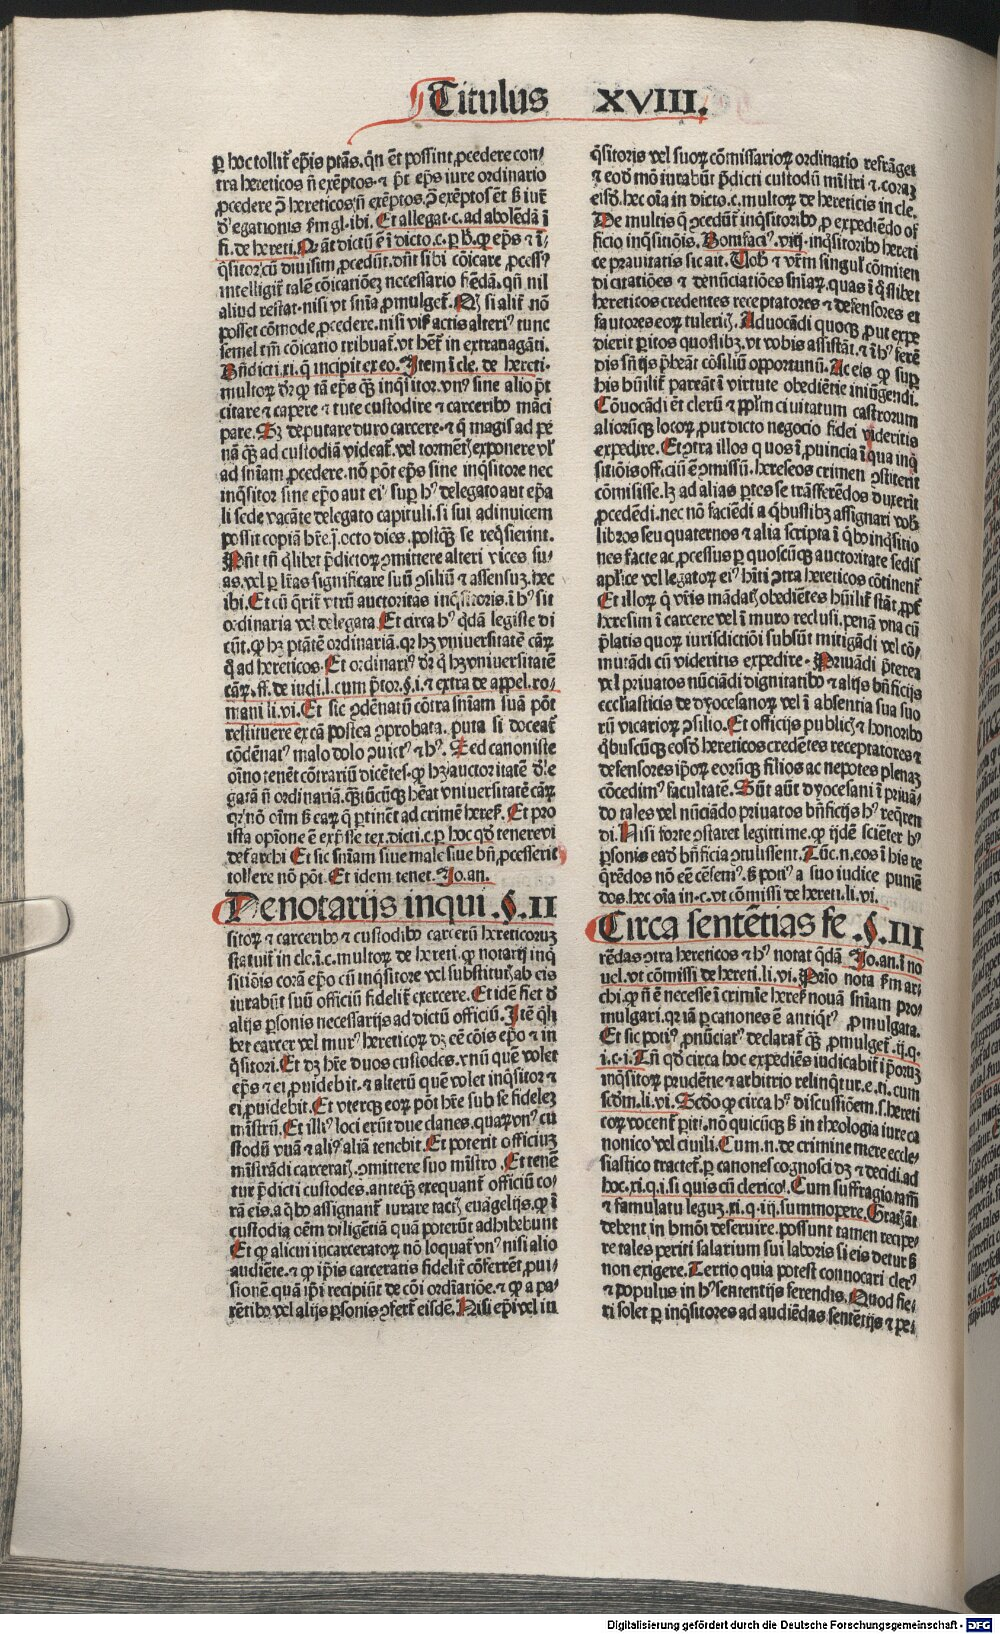 Titulus XVIII.
ꝑ hoc tollit᷑ ep̄is ptās.qn̄ et̄ possint ꝓcedere con/
tra hereticos n̄ exēptos.⁊ pr̄t ep̄s iure ordinario
ꝓcedere ꝯ̄ hereticos n̄ exēptos.ꝯ̄ exēptos et̄ ß iur̄
d̓egationis ẜm gl.ibi. Et allegat.c.ad abolēdā ī
fi.de hereti.
q̄sitor cū diuisim ꝓcedūt.dn̄t sibi cōicare ꝓcessꝰ
intelligit᷑ talē cōicationē necessario fiēdā.qn̄ nil
aliud restat.nisi vt sn̄ia ꝓmulget᷑. Qꝫ si alit᷑ nō
posset cōmode ꝓcedere.nisi visis actis alteriꝰ tunc
semel tm̄ cōicatio tribuat᷑.vt het᷑ in extrauagāti.
Bn̄dicti.xi.q incipit ex eo. Item ī cle. de hereti.
multoꝝ dr̄ ꝙ tā ep̄s qꝫ inq̄sitor.vnꝰ sine alio pr̄t
citare ⁊ capere ⁊ tute custodire ⁊ carceribꝰ māci
pare. Sꝫ deputare duro carcere.⁊ q magis ad pe
nā qꝫ ad custodiā videat᷑.vel tormētꝭ exponere vl̓
ad sn̄iam ꝓcedere.nō pōt ep̄s sine inq̄sitore nec
inq̄sitor sine ep̄o aut eiꝰ sup hͦ delegato aut ep̄a
li sede vacāte delegato capituli.si sui adinuicem
possit copiā hr̄e.ī.octo dies.postqꝫ se reqͥsierint.
Pn̄t tn̄ qͥlibet p̄dictoꝝ ꝯmittere alteri vices su/
as.vel ꝑ lr̄as significare suū ꝯsiliū ⁊ assensuꝫ.hec
ibi. Et cū qͥrit᷑ vtrū auctoritas inq̄sitoris.ī hͦ sit
ordinaria vel delegata. Et circa hͦ qͥdā legiste di
cūt.ꝙ hꝫ ptātē ordinariā.qꝛ hꝫ vniuersitatē cāꝝ
q̄ ad hereticos. Et ordinariꝰ dr̄ q hꝫ vniuersitatē
cāꝝ.ff.de iudi.l.cum p̄tor.§.i.⁊ extra de appel.ro/
mani li.vi. Et sic ꝯdēnatū cōtra sn̄iam suā pōt
restituere ex cā postea ꝯprobata. puta si doceat᷑
cōdēnatꝰ malo dolo ꝯuictꝰ ⁊ hͦ. Sed canoniste
oīno tenēt cōtrariū dicētes.ꝙ hꝫ auctoritatē d̓le
gatā n̄ ordinariā.qꝫuīcūqꝫ heat vniuersitatē cāꝝ
qꝛ nō oīm ß eaꝝ q ꝑtinēt ad crimē heres̄. Et pro
ista opiōne ē exp̄sse tex.dicti.c.ꝑ hoc qd̓ tenere vi
det᷑ archi Et sic sn̄iam siue male siue bn̄ ꝓcesserit
tollere nō pōt. Et idem tenet. Io.an.
De notarijs inqui.§.II
sitoꝝ ⁊ carceribꝰ ⁊ custodibꝰ carcerū hereticoruꝫ
statuit᷑ in cle.ī.c.multoꝝ de hereti.ꝙ notarij inq̄
sitiōis corā ep̄o cū inq̄sitore vel substitutꝭ ab eis
iurabūt suū officiū fidelit᷑ exercere. Et idē fiet d̓
alijs ꝑsonis necessarijs ad dictū officiū. Itē qͥli
bet carcer vel murꝰ hereticoꝝ dꝫ eē cōis ep̄o ⁊ in
q̄sitori. Et dꝫ hr̄e duos custodes.vnū quē volet
ep̄s ⁊ ei ꝓuidebit.⁊ alterū quē volet inq̄sitor ⁊
ei ꝓuidebit. Et vterqꝫ eoꝝ pōt hr̄e sub se fidelez
mīstrū. Et illiꝰ loci erūt due claues.quaꝝ vnꝰ cu
stodū vnā ⁊ aliꝰ aliā tenebit. Et poterit officiuꝫ
mīstrādi carceratꝭ ꝯmittere suo mīstro. Et tenē
tur p̄dicti custodes.anteqꝫ exequant᷑ officiū co/
rā eis.a qͥbꝰ assignant᷑ iurare tactꝭ euāgelijs.ꝙ ī
custodia oēm diligētiā quā poterūt adhibebunt
Et ꝙ alicui incarceratoꝝ nō loquat᷑ vnꝰ nisi alio
audiēte.⁊ ꝙ ip̄is carceratis fidelit᷑ cōferēt ꝓui/
sionē quā ip̄i recipiūt de cōi ordiatiōe.⁊ ꝙ a pa/
rētibꝰ vel alijs ꝑsonis ꝯfert᷑ eisdē. Nisi ep̄i vel in
q̄sitoris vel suoꝝ cōmissarioꝝ ordinatio refrāget᷑
⁊ eodē mō iurabūt p̄dicti custodū mīstri ⁊.coraꝫ
eisd̓. hec oīa in dicto.c.multoꝝ de hereticis in cle.
De multis q ꝯcedūt᷑ inq̄sitoribꝰ ꝓ expediēdo of
ficio inq̄sitiōis. Bonifaciꝰ.viij.inq̄sitoribꝰ hereti
ce prauitatis sic ait. Vob̄ ⁊ vr̄m singul̓ cōmitten
di citatiōes ⁊ denūciatiōes sn̄iaꝝ.quas ī qͥslibet
hereticos credentes receptatores ⁊ defensores et
fautores eoꝝ tuleritꝭ. Aduocādi quoqꝫ ꝓut expe
dierit ꝑitos quoslibꝫ.vt vobis assistāt.⁊ ī hͦ ferē
dis sn̄tijs p̄beāt cōsiliū opportunū. Ac eis ꝙ sup
his hūilit᷑ pareāt ī virtute obediētie iniūgendi.
Cōuocādi et̄ clerū ⁊ ppl̄m ciuitatum castrorum
aliorūqꝫ locoꝝ ꝓut dicto negocio fidei videritis
expedire. Et ꝯtra illos q vos ī ꝓuincia ī qua inq̄
sitiōis officiū ē ꝯmissū.hereseos crimen ꝯstiterit
cōmisisse.lꝫ ad alias ꝑtes se trāsferēdos duxerīt
ꝓcedēdi.nec nō faciēdi a qͥbuslibꝫ assignari vob̄
libros seu quaternos ⁊ alia scripta ī qͥbꝰ inq̄sitio
nes facte ac ꝓcessus ꝑ quoscūqꝫ auctoritate sedis
apl̓ice vel legatoꝝ eiꝰ hīti ꝯtra hereticos cōtinent᷑
Et illoꝝ q̄ vr̄is mādatꝭ obediētes hūilit᷑ stāt ꝓpt᷑
heresim ī carcere vel ī muro reclusi.penā vna cū
p̄latis quoꝝ iurisdictiōi subsūt mitigādi vel cō/
mutādi cū videritis expedire. Priuādi p̄terea
vel priuatos nūciādi dignitatibꝰ ⁊ alijs bn̄ficijs
ecclesiasticis de dyocesanoꝝ vel ī absentia sua suo
rū vicarioꝝ ꝯsilio. Et officijs publicꝭ ⁊ honoribꝰ
qͥbuscūqꝫ eosd̓ hereticos credētes receptatores ⁊
defensores ip̄oꝝ eorūqꝫ filios ac nepotes plenaꝫ
cōcedimꝰ facultatē. Sūt aūt dyocesani ī priuā/
do tales vel nūciādo priuatos bn̄ficijs hͦ reqͥren
di. Nisi forte ꝯstaret legittime.ꝙ ijdē sciēter hͦ
ꝑsonis ead̓ bn̄ficia ꝯtulissent. Tūc.n.eos ī his re
qͥrēdos nō eē cēsemꝰ.ß potiꝰ a suo iudice punie
dos.hec oīa in.c.vt cōmissi de hereti.li.vi.
Circa sentētias fe.§.III
rēdas ꝯtra hereticos ⁊ hͦ notat qͥdā Io.an.ī no
uel.vt cōmissi de hereti.li.vi. Prīo nota ẜm ar/
chi.ꝙ n̄ ē necesse ī crimie heres̄ nouā sn̄iam pro/
mulgari.qꝛ iā ꝑ canones ē antiqͥtꝰ ꝓmulgata.
Et sic potiꝰ ꝓnūciat᷑ declarat᷑ qꝫ ꝓmulget᷑.ij.q.
i.c.i. Tn̄ qd̓ circa hoc expediēs iudicabit᷑ ip̄oruꝫ
inq̄sitoꝝ prudētie ⁊ arbitrio relinqͥtur.e.ti.cum
scd̓m.li.vi. Scd̓o ꝙ circa hͦ discussiōem.s.hereti
coꝝ vocent᷑ ꝑiti.nō quicūqꝫ ß in theologia iure ca
nonico vel ciuili. Cum.n.de crimine mere eccle/
siastico tractet᷑.ꝑ canones cognosci dꝫ ⁊ decidi.ad
hoc.xi.q.i.si quis cū clerico. Cum suffragio.tam̄
⁊ famulatu leguꝫ.xi.q.iij.summopere. Gratꝭ āt
debent in bmōi deseruire.possunt tamen recipe/
re tales periti salarium sui laboris si eis detur ß
non exigere. Tertio quia potest conuocari clerꝰ
⁊ populus in hͦ sententijs ferendis. Quod fie/
ri solet ꝑ inq̄sitores ad audiēdas sentētijs ⁊ pe/
Digitalisierung gefördert durch die Deutsche Forschungsgemeinschaft - DFG